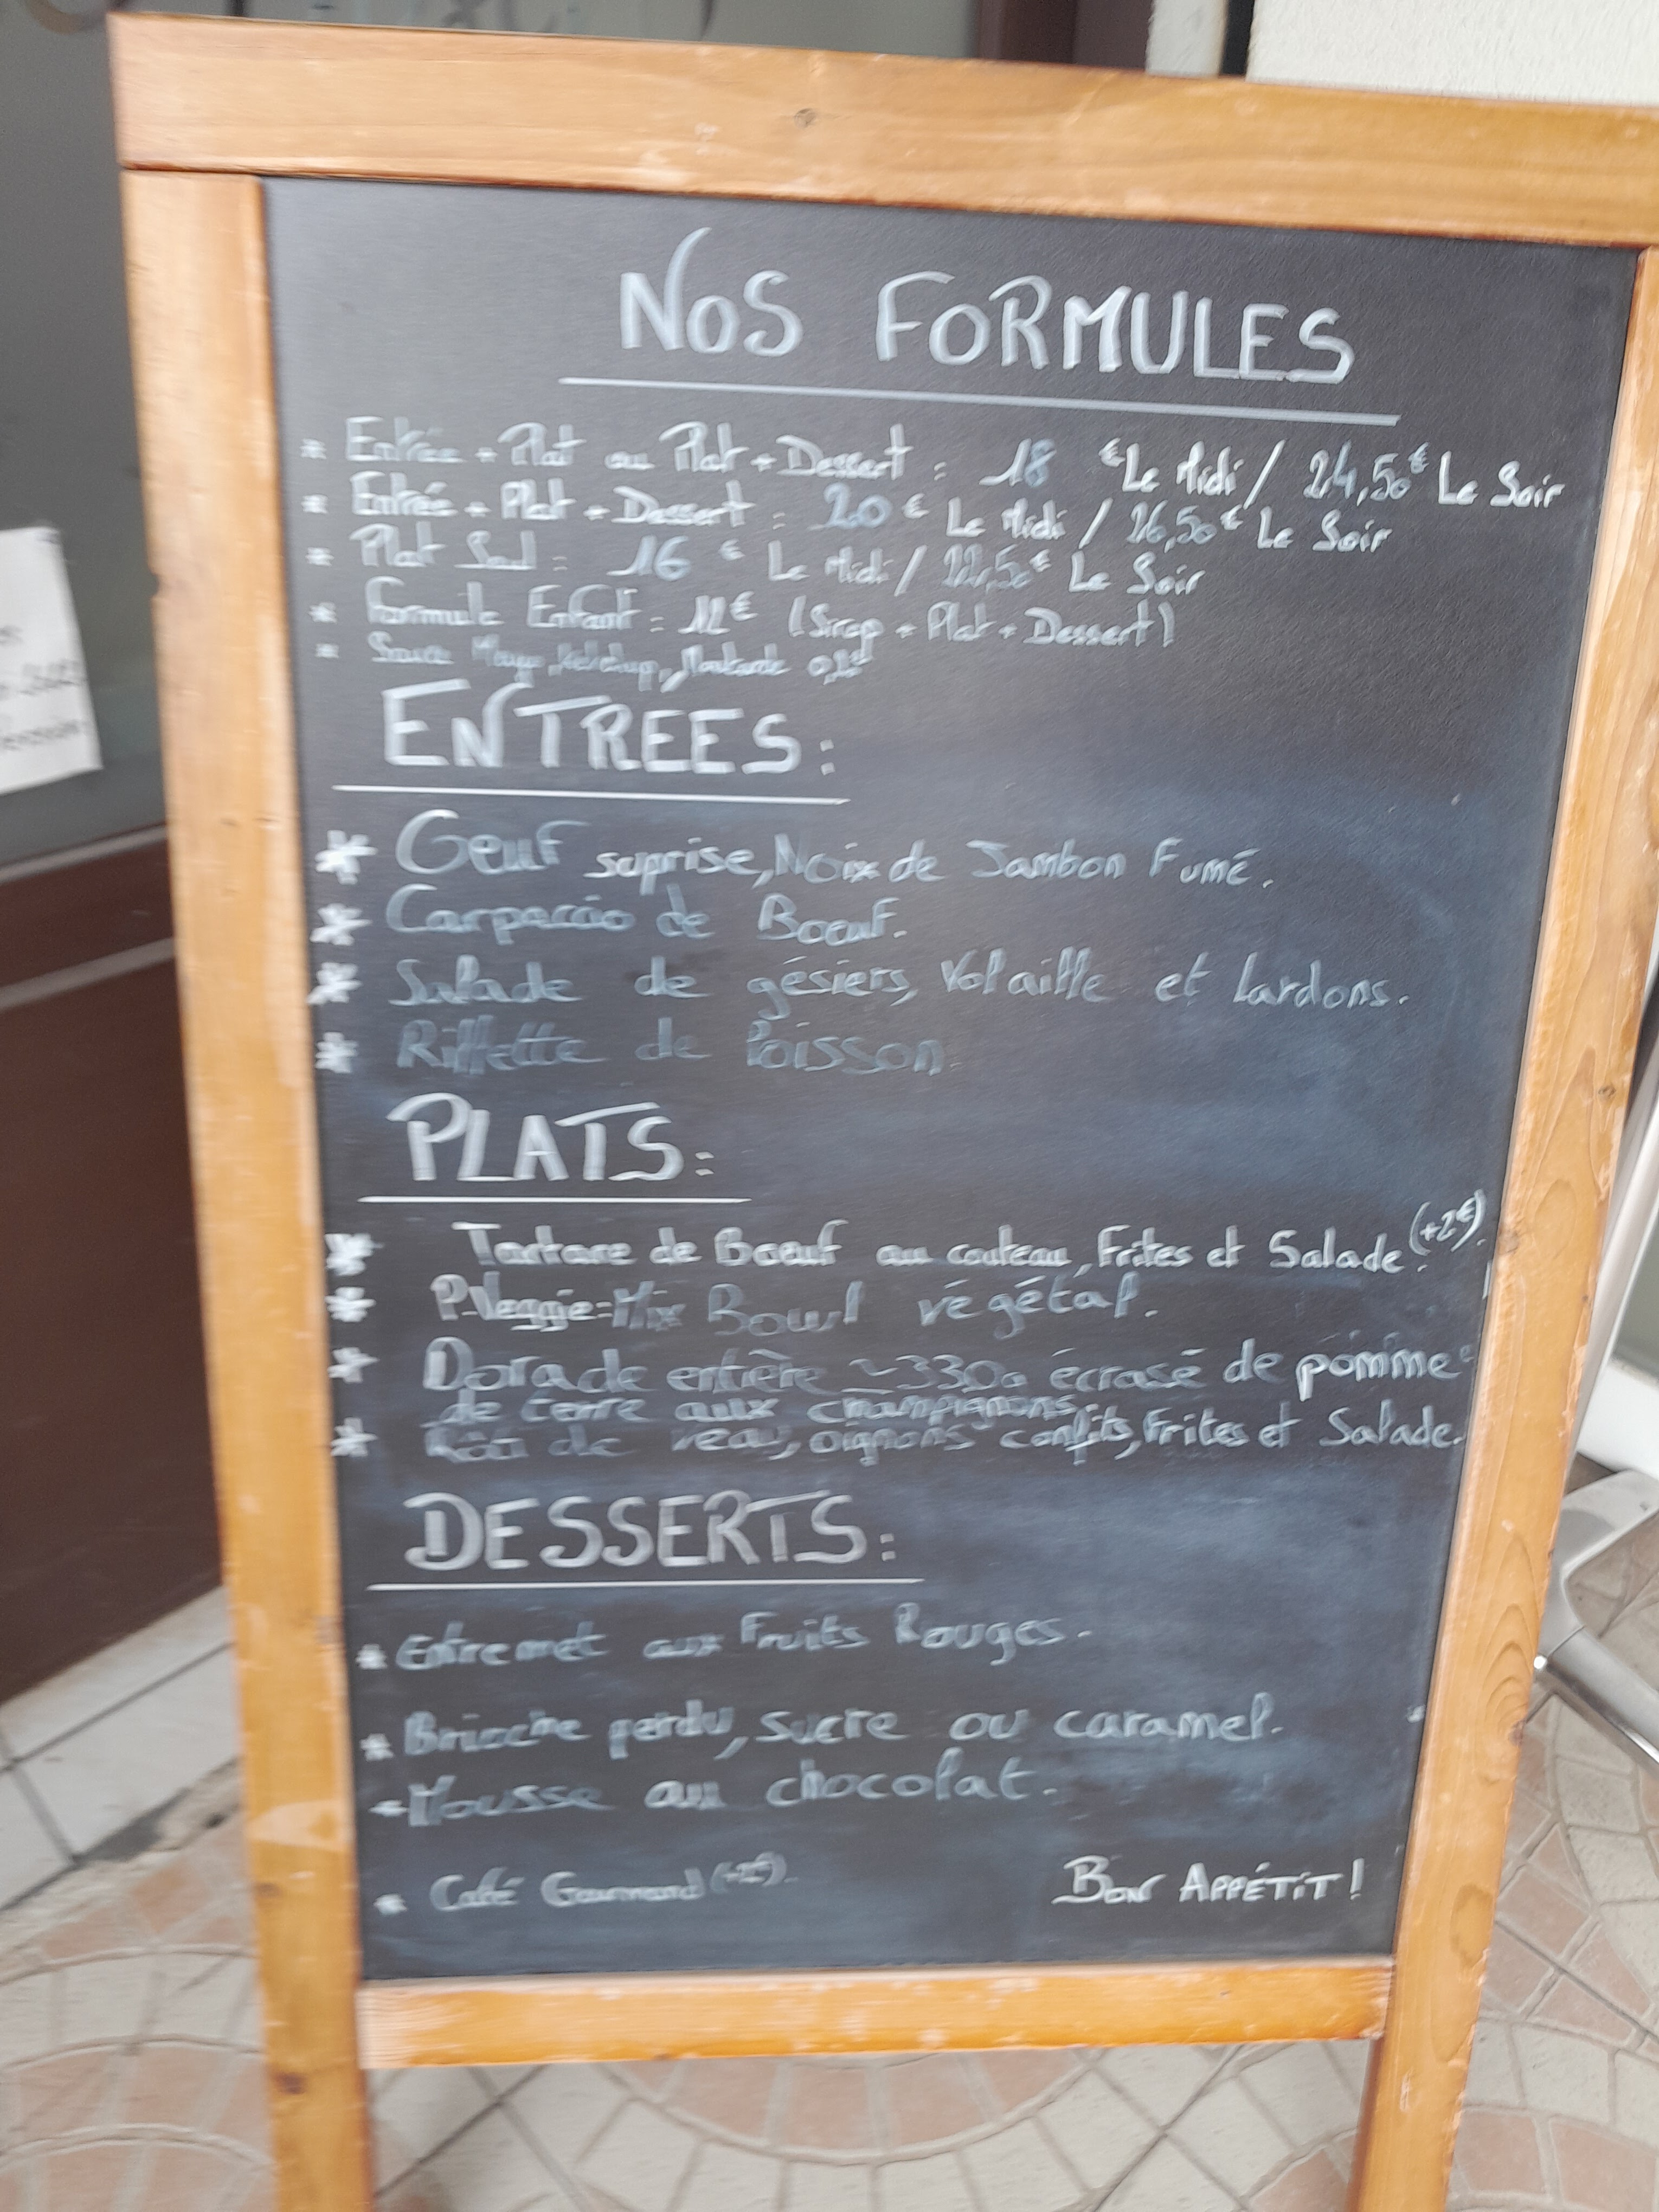 NOS FORMULES
* Entrée + Plat ou Plat + Dessert : 18 € Le Midi / 24,50€ Le Soir
* Entrée + Plat + Dessert : 20 € Le Midi / 26,50€ Le Soir
* Plat Seul : 16 € Le Midi / 22,50€ Le Soir
* Formule Enfant : 12€ (Sirop + Plat + Dessert)
* Sauce Mayo, Ketchup, Moutarde
ENTREES :
* Oeuf suprise, Noix de Jambon Fumé.
* Carpaccio de Boeuf.
* Salade de gésiers, Volaille et Lardons.
* Rillette de Poisson
PLATS :
* Tartare de Boeuf au couteau, Frites et Salade. (+2€)
* P-Veggie-Mix Bowl végétal.
* Dorade entière ~330g écrasé de pomme
de terre aux champignons.
* Rôti de veau, oignons confits, Frites et Salade.
DESSERTS :
* Entremet aux Fruits Rouges.
* Brioche perdu, sucre ou caramel.
* Mousse au chocolat.
* Café Gourmand (+2€).
BON APPÉTIT !